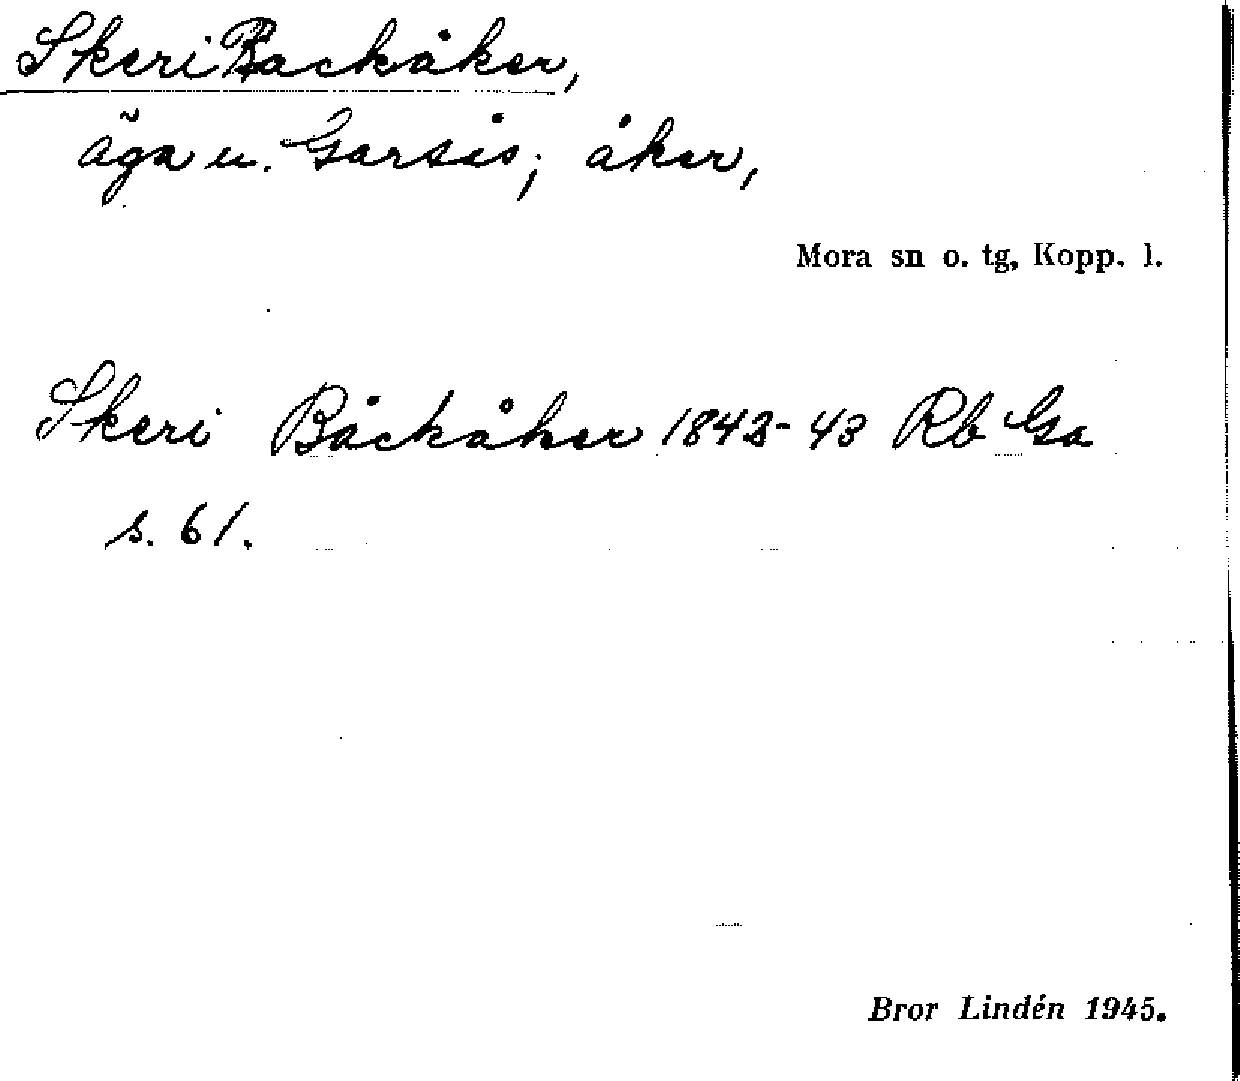 Skeri Backåker,
äga u. Garsås; åker,
Mora sn o. tg, Kopp. l.
Skeri Båckåker 1842-43 Rb Ga
s. 61.
Bror Lindén 1945.